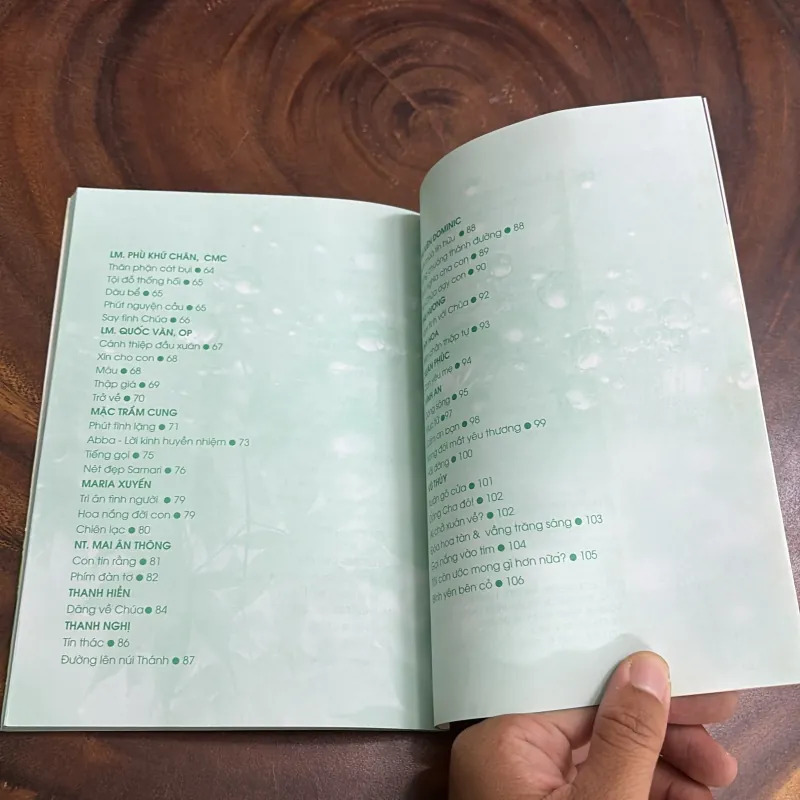 LM. PHÙ KHỨ CHÂN, CMC
Thân phận cát bụi ● 64
Tội đồ thống hối ● 65
Dâu bể ● 65
Phút nguyện cầu ● 65
Say tình Chúa ● 66
LM. QUỐC VĂN, OP
Cánh thiệp đầu xuân ● 67
Xin cho con ● 68
Máu ● 68
Thập giá ● 69
Trở về ● 70
MẶC TRẦM CUNG
Phút tĩnh lặng ● 71
Abba - Lời kinh huyền nhiệm ● 73
Tiếng gọi ● 75
Nét đẹp Samari ● 76
MARIA XUYẾN
Tri ân tình người ● 79
Hoa nắng đời con ● 79
Chiên lạc ● 80
NT. MAI ÂN THÔNG
Con tin rằng ● 81
Phím đàn tơ ● 82
THANH HIỀN
Dâng về Chúa ● 84
THANH NGHỊ
Tín thác ● 86
Đường lên núi Thánh ● 87
DOMINIC
hữu ● 88
thánh đường ● 88
cha con ● 89
dạy con ● 90
với Chúa ● 92
HOA
thập tự ● 93
PHÚC
yêu mẹ ● 94
AN
sáng ● 95
● 97
bạn ● 98
đôi mắt yêu thương ● 99
● 100
THÚY
gõ cửa ● 101
Cha đó! ● 102
chở xuân về? ● 102
hoa tàn & vầng trăng sáng ● 103
nắng vào tim ● 104
còn ước mong gì hơn nữa? ● 105
yên bên cỏ ● 106